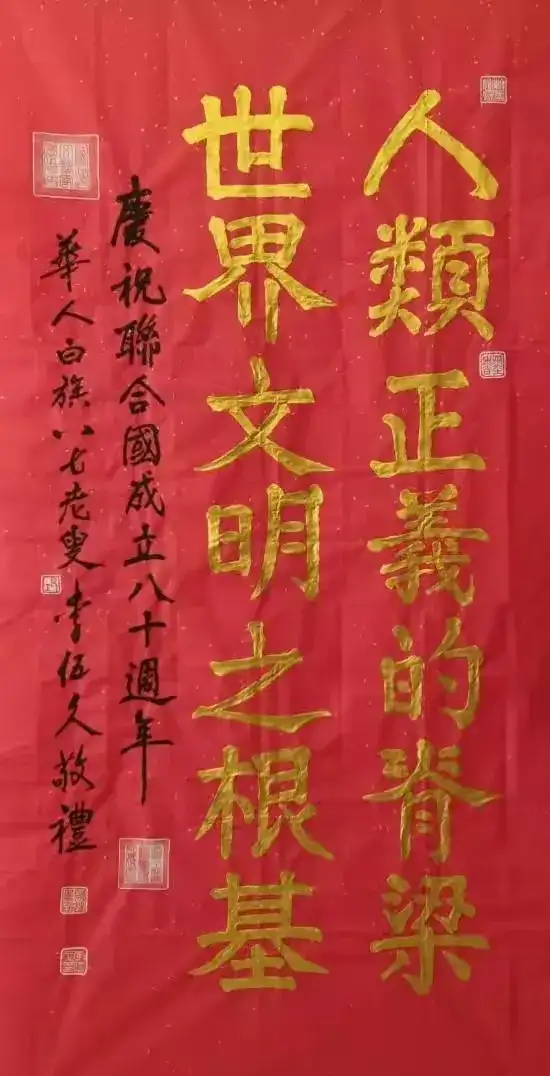 人類正義的脊梁
世界文明之根基
慶祝聯合國成立八十週年
華人白族八七老叟李伍久敬禮